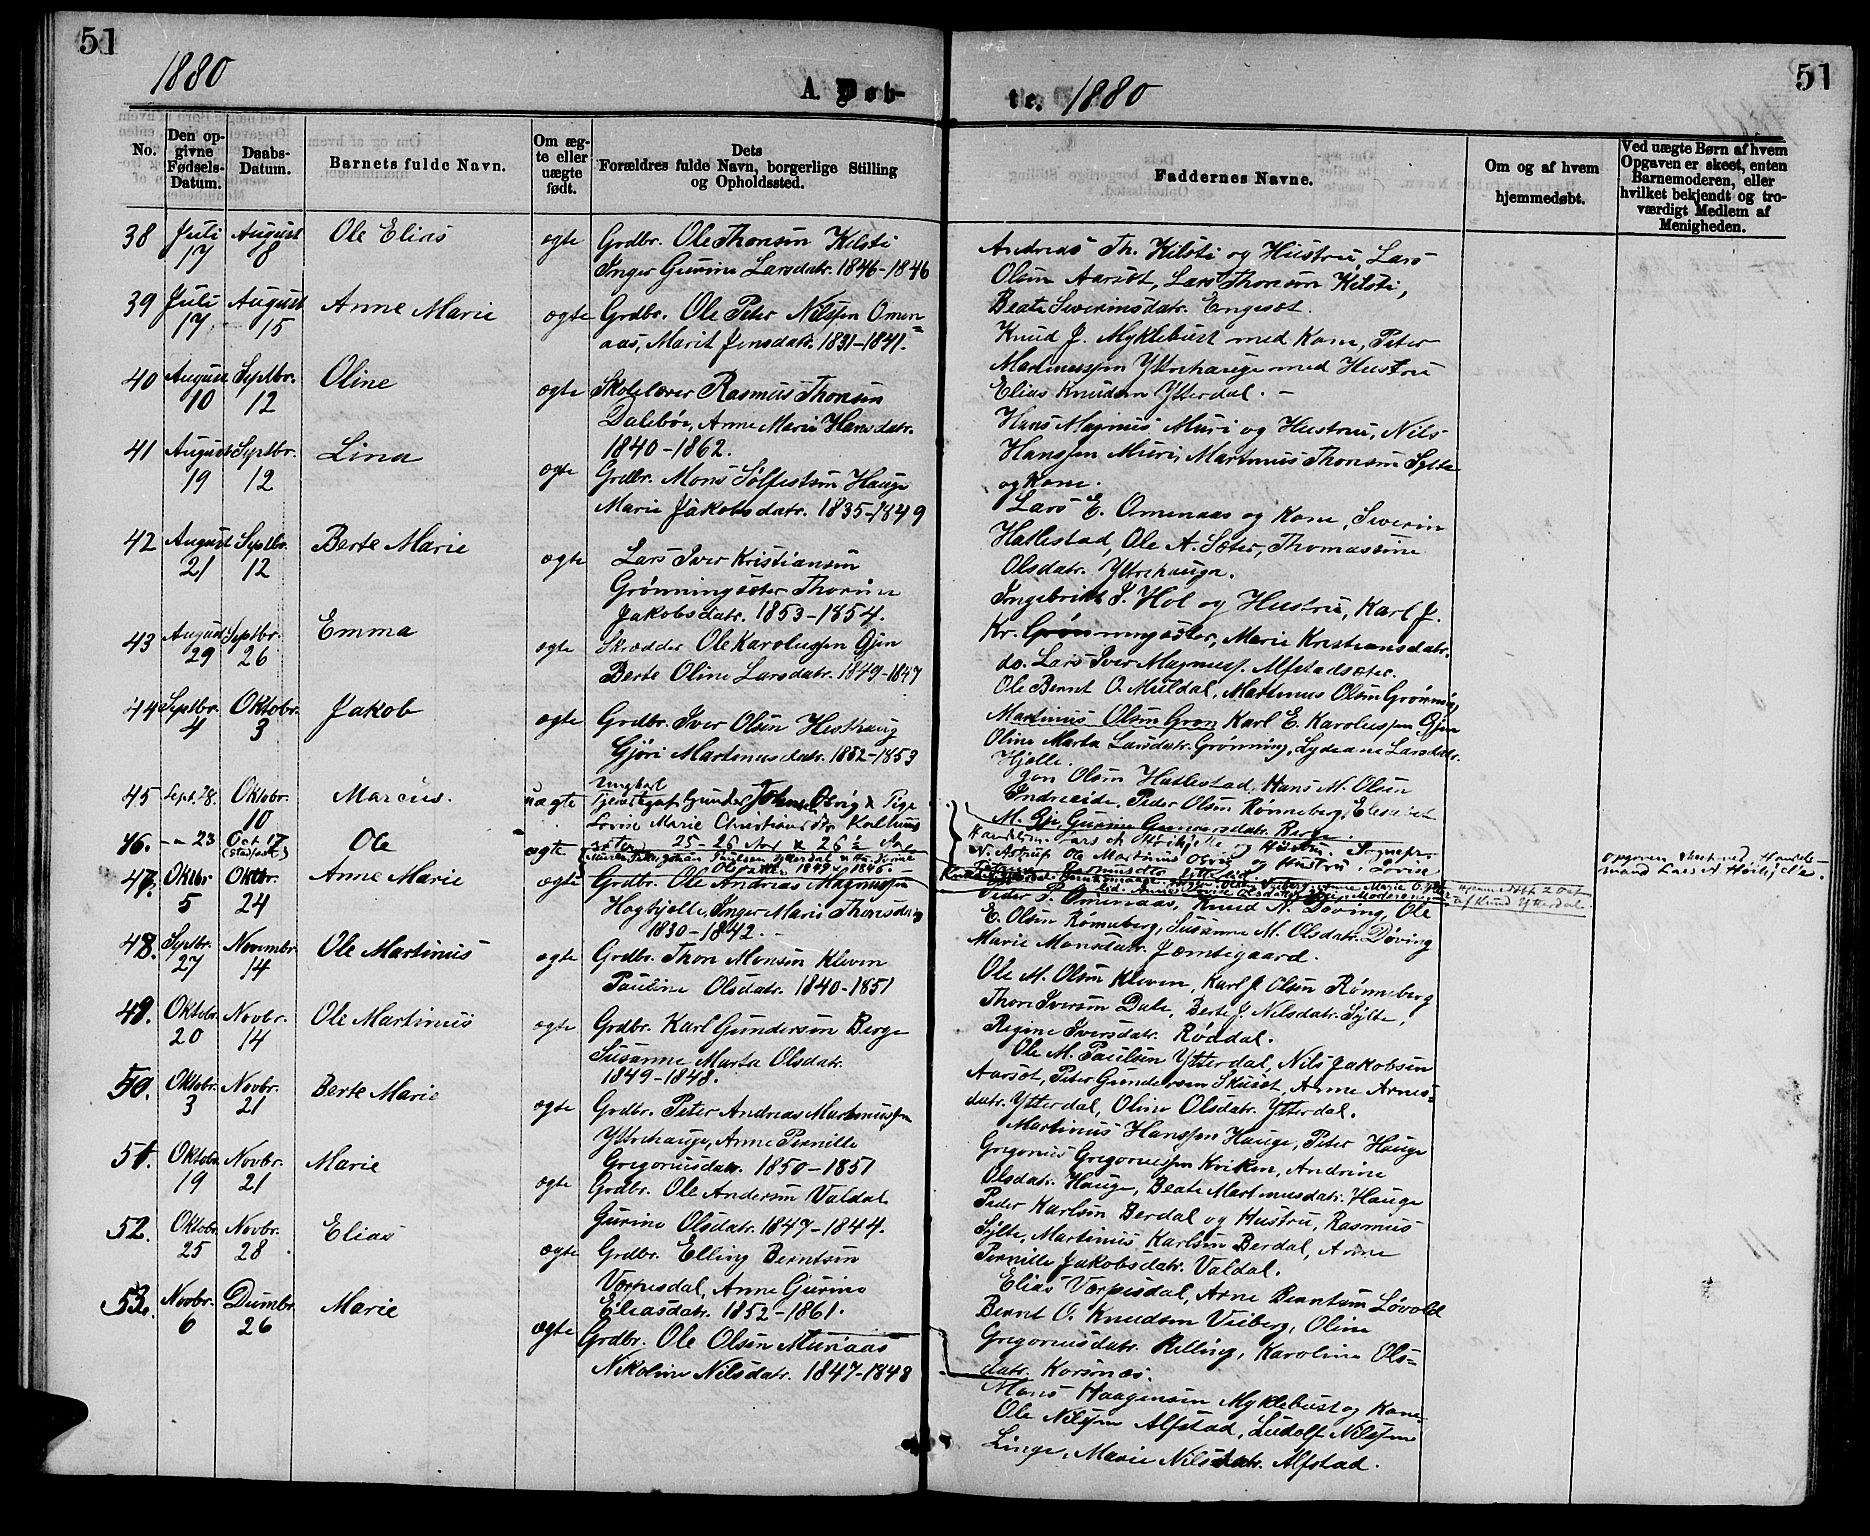 51
1880
A. Døb-
No.
Den opgivne Fødsels-Datum.
Daabs-Datum.
Barnets fulde Navn.
Om ægte eller uægte født.
Dets Forældres fulde Navn, borgerlige Stilling og Opholdssted.
38 Juli 17 August 8 Ole Elias ægte Grdbr. Ole Thonsen Kilsti
Inger Gurine Larsdatr. 1846-1846
39 Juli 17 August 15 Anne Marie ægte Grdbr. Ole Peter Nilssen Omen=
aas, Marit Jensdatr. 1831-1841.
40 August 10 Septbr. 12 Oline ægte Skolelærer Rasmus Thonsen
Dalebør, Anne Marie Hansdatr.
1840-1862.
41 August 19 Septbr. 12 Lina ægte Grdbr. Mons Solfestsøn Hauge
Marie Jakobsdatr. 1835-1849
42 August 21 Septbr. 12 Berte Marie ægte Lars Iver Kristiansen
Grønningsæter Thorine
Jakobsdatr. 1853-1854.
43 August 29 Septbr. 26 Emma ægte Skrædder Ole Karolussen Gjen
Berte Oline Larsdatr. 1849-1847
44 Septbr. 4 Oktobr. 3 Jakob ægte Grdbr. Iver Olsen Hesthaug
Gjøri Martinusdatr. 1852-1853
45 Sept. 28. Oktobr. 10 Marcus. uægte Ungkarl
Gunder Johns. Pige
Lovise Marie
25-26 26
46. -"- 23 Oct 17 (stadfæst.) Ole ægte
Ytterdal 1849-1846.
47. Oktbr 5 Oktbr. 24 Anne Marie ægte Grdbr. Ole Andreas Magnussen
Høgbjelle, Inger Marie Thonsdatr
1830-1842.
48. Septbr. 27 Novembr. 14 Ole Martinus ægte Grdbr. Thon Monsen Kleven
Pauline Olsdatr. 1840-1851
49. Oktobr. 20 Novbr. 14 Ole Martinus ægte Grdbr. Karl Gundersen Berge
Susanne Marta Olsdatr.
1849-1848.
50. Oktobr. 3 Novbr. 21 Berte Marie ægte Grdbr. Peter Andreas Martinussen
Yttrehauge, Anne Pernille
Gregoriusdatr. 1850-1851
51. Oktobr. 19 Novbr. 21 Marie ægte Grdbr. Ole Andersen Valdal
Gurine Olsdatr. 1847-1844.
52. Oktobr. 25 Novbr. 28 Elias ægte Grdbr. Elling Berntsen
Værpesdal, Anne Gurine
Eliasdatr. 1852-1861.
53. Novbr. 6 Dcmbr. 26 Marie ægte Grdbr. Ole Olsen Muriaas
Nikoline Nilsdatr. 1847-1848
51
te. 1880
Faddernes Navne.
Om og af hvem hjemmedøbt.
Ved uægte Børn af hvem Opgaven er skeet, enten Barnemoderen, eller hvilket bekjendt og troværdigt Medlem af Menigheden.
Andreas Th. Kilsti og Hustru, Lars
Olsen Aarsæt, Lars Thonsen Kilsti,
Beate Severinsdatr. Engesæt.
Knud J. Myklebust med Kone, Peter
Martinussen Yttrehauge med Hustru
Elias Knudsen Ytterdal. -
Hans Magnus Muri og Hustru, Nils
Hanssen Muri, Martinus Thonsen Sylte
og Kone.
Lars E. Omenaas og Kone, Severin
Hatlestad, Ole A. Sæter, Thomassine
Olsdatr. Yttrehauge.
Ingebrikt P. Hol og Hustru, Karl J.
Kr. Grønningsæter, Marie Kristiansdatr.
do. Lars Iver Magnuss. Alfstadsæter.
Ole Bernt O. Muldal, Martinus Olsen Grønning
Martinus Olsen Grøn Karl E. Karolussen Gjen
Oline Marta Larsdatr. Grønning, Lydeane Larsdatr.
Hjelle.
Jon Olsen Hatlestad, Hans M. Olsen
Indreeide, Peder Olsen Rønneberg, Elisabet
M. Gurine Gunnersdatr. Berge.
Lars A. Høihjelle og Hustru,
N. Astrup Ole Martinus og Hustru, Lovise
Hjemmedøbt 2 Oct
af Knud Ytterdal
Opgaven skeet ved Handels-
mand Lars A. Høihjelle.
Peder P. Omenaas, Knud N. Døving, Ole
E. Olsen Rønneberg, Susanne M. Olsdatr. Døving
Marie Monsdatr. Jemtegaard.
Ole M. Olsen Kleven, Karl J. Olsen Rønneberg
Thore Iversen Dale, Berte J. Nilsdatr. Sylte,
Regine Iversdatr. Røddal.
Ole M. Paulsen Ytterdal, Nils Jakobsen
Aarsæt, Peter Gundersen Skusæt, Anne Arnes=
datr. Ytterdal, Oline Olsdatr. Ytterdal.
Martinus Hanssen Hauge, Peter Hauge
Gregorius Gregoriussen Kriken, Andrine
Olsdatr. Hauge, Beate Martinusdatr. Hauge
Peder Karlsen Berdal og Hustru, Rasmus
Sylte, Martinus Karlsen Berdal, Anne
Pernille Jakobsdatr. Valdal.
Elias Værpesdal, Arne Berntsen Løvold
Bernt O. Knudsen Viberg, Oline
Gregoriusdatr. Relling, Karoline Ols=
datr. Korsnæs.
Mons Haagensen Myklebust og Kone
Ole Nilssen Alfstad, Ludolf Nilssen
Linge, Marie Nilsdatr. Alfstad.